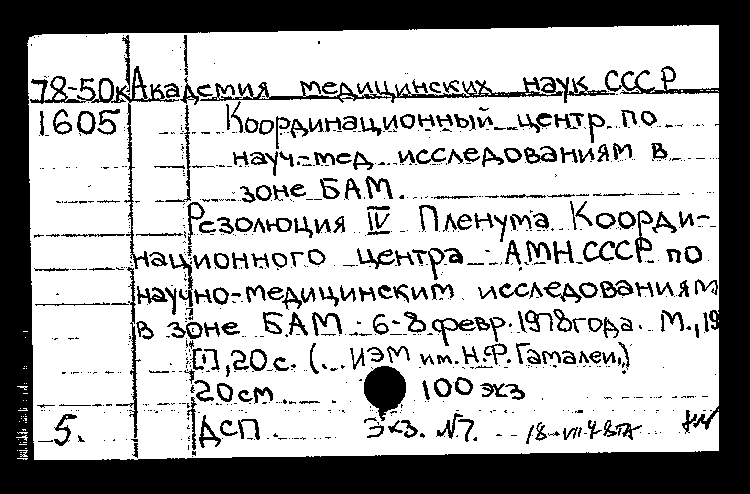 78-50к Академия медицинских наук СССР
1605 Координационный центр по
науч-мед исследованиям в
зоне БАМ.
Резолюция IV Пленума Коорди-
национного центра АМН СССР по
научно-медицинским исследованиям
в зоне БАМ. 6-8 февр. 1978 года. М., 19
[I], 20 с. (... ИЭМ им. Н.Ф. Гамалеи.)
20 см 100 экз
5. ДСП. Экз. №7.